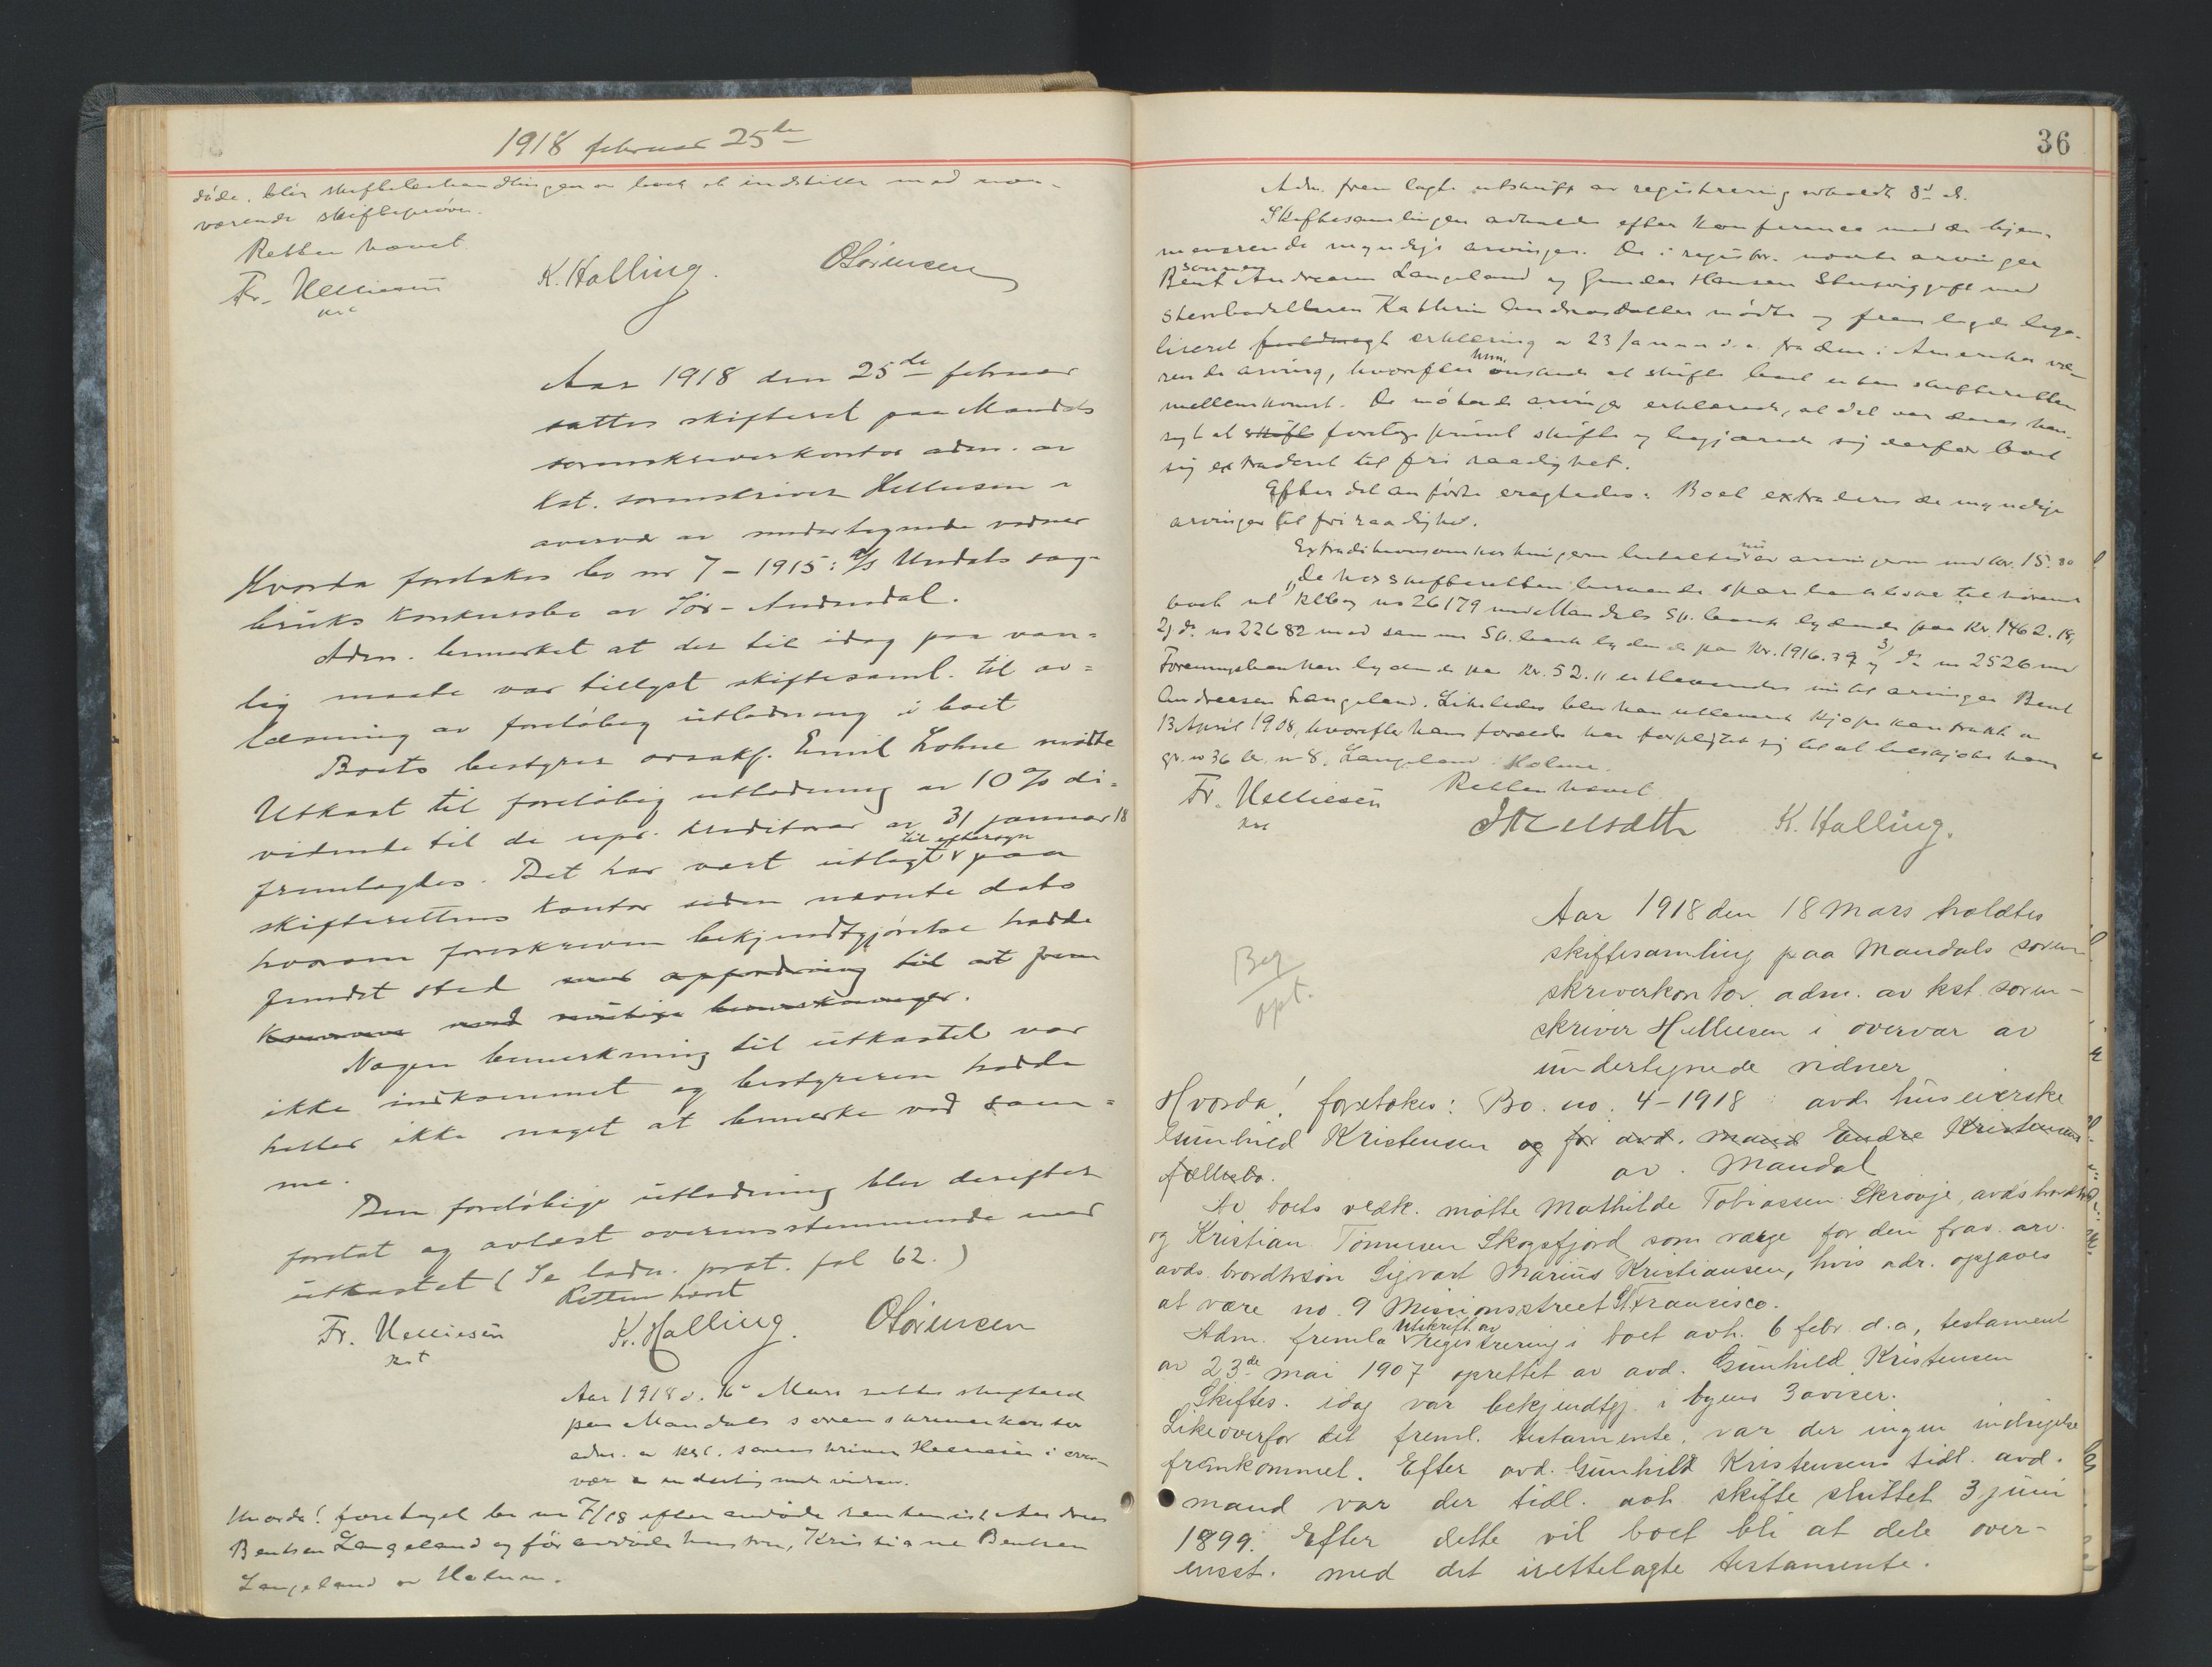 1918 februar 25de
døde, blir skiftebehandlingen av boet at indstille med nær-
værende skifteprøve.
Retten hævet
Fr. Helliesen K. Halling. O Sørensen
kst
Aar 1918 den 25de februar
sattes skifteret paa Mandals
sorenskriverkontor adm. av
kst. sorenskriver Helliesen i
overvær av undertegnede vidner
Hvorda foretokes bo nr 7 – 1915: A/S Undals sag-
bruks konkursbo av Sør-Audnedal.
Adm. bemerket at der til idag paa van-
lig maate var tillyst skiftesaml. til av-
læsning av foreløbig utlodning i boet
Boets bestyrer o.r.sakf. Emil Lohne møtte
Utkast til foreløbig utlodning av 10 % di-
vidende til de upr. kreditorer av 31 januar 18
fremlagdes. Det har været utlagt til eftersyn paa
skifterettens kontor siden nævnte dato
hvorom foreskreven bekjendtgjørelse hadde
fundet sted med opfordring til at frem
komme med mulige bemerkninger.
Nogen bemerkning til utkastet var
ikke indkommet og bestyreren hadde
heller ikke noget at bemerke ved sam-
me.
Den foreløbige utlodning blev derefter
foretat og avlæst overensstemmende med
utkastet (Se lodn. prot. fol 62.)
Retten hævet
Fr. Helliesen K. Halling. O Sørensen
kst
Aar 1918 d. 16 Mars sattes skifteret
paa Mandals sorenskriverkontor
adm. av kst. sorenskriver Helliesen i over-
vær av undertegnede vidner.
Hvorda! foretoges bo nr 7/18 efter avdøde Andreas
Bentsen Langeland og før avdøde hustru, Kristiane Bentsen
Langeland av Halum.
36
Adm. fremlagte utskrift av registrering avholdt 8d ds.
Skiftesamlingen avholdes efter konferance med de hjem-
meværende myndige arvinger. De i registr. nævnte arvinger
sønnen Bent Andreasen Langeland og Gunder Hansen gift med
stervbodatteren Kathrin Andreasdatter mødte og fremlagde lega-
liseret fuldmagt erklæring av 23 Januar d.a. fra den i Amerika væ-
rende arving, hvorefter hun ønskede at skifte boet uten skifterettens
mellemkomst. De mødende arvinger erklærede, at det var deres hen-
sigt at skifte foretage privat skifte og begjærede sig derfor boet
sig extraderet til fri raadighet.
Efter det anførte eragtedes: Boet extraderes de myndige
arvinger til fri raadighet.
Extraditionsomkostningerne betaltes nu av arvingerne med kr. 15.80
De hos skifteretten beroende sparebankbøker tilhørende
boet nl 1) Kbog no 26179 med Mandals Sp. bank lydende paa Kr. 1462.18,
2) do no 22682 med samme Sp. bank lydende paa Kr. 1916.39 og 3) do no 2526 med
Foreningsbanken lydende paa Kr. 52.11 utleveredes nu til arvingen Bent
Andreasen Langeland. Likeledes blev ham utleveret kjøpekontrakt av
13 April 1908, hvorefter hans forældre har forpligtet sig til at tilskjøte ham
gr. no 36 br. no 8. Langeland i Holme.
Retten hævet
Fr. Helliesen K. Halling.
kst
Beg
opt.
Aar 1918 den 18 Mars holdtes
skiftesamling paa Mandals soren-
skriverkontor, adm. av kst. soren-
skriver Helliesen i overvær av
undertegnede vidner
Hvorda! foretokes: Bo. no. 4 – 1918 avd. huseierske
Gunhild Kristensen og før avd. mand Endre Kristensens
fællesbo. av Mandal
Av boets vedk. møtte Mathilde Tobiassen Skrøvje, avd's
og Kristian Tønnesen Skogsfjord som værge for den frav. arv.
avds. brordtrsøn Sigvart Marius Kristiansen, hvis adr. opgaves
at være no. 9 Missionsstreet St Francisco.
Adm. fremla utskrift av registrering i boet avh. 6 febr. d.a, testament
av 23de mai 1907 oprettet av avd. Gunhild Kristensen
Skiftes. idag var bekjendtgj. i byens 3 aviser.
Likeoverfor det freml. testamente var der ingen indsigelse
fremkommet. Efter avd. Gunhild Kristensens tidl. avd.
mand var der tidl. avh. skifte sluttet 3 juni
1899. Efter dette vil boet bli at dele over-
ensst. med det irettelagte testamente.